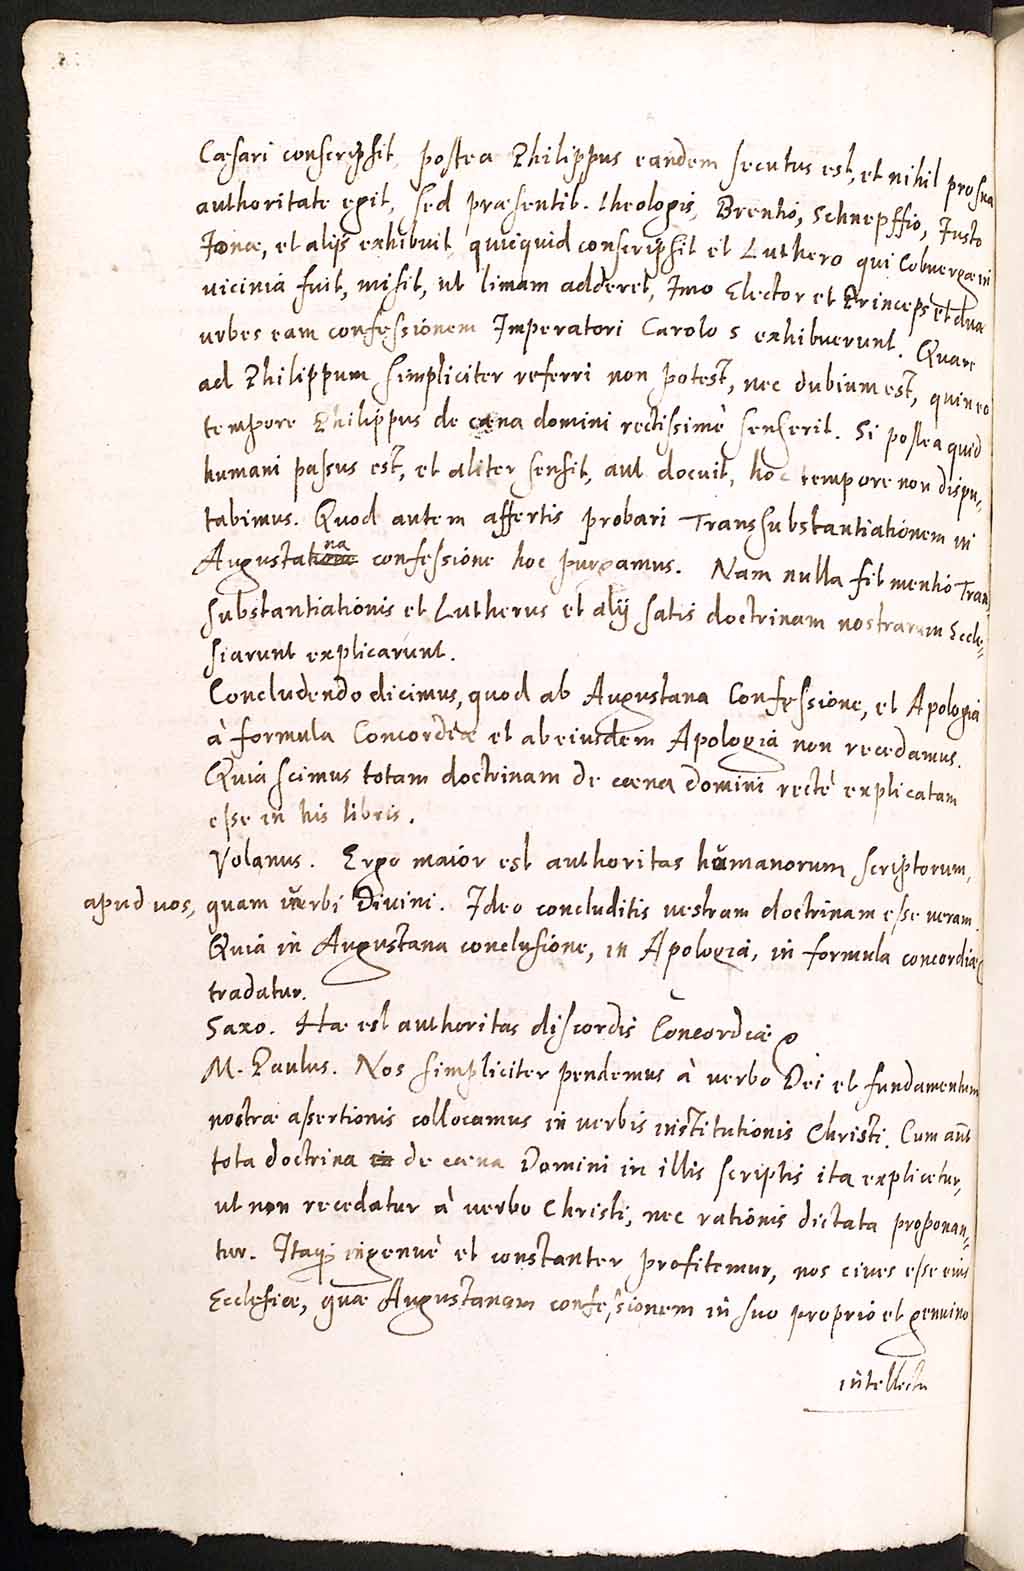 Cæsari conscripsit, postea Philippus eandem secutus est, et nihil pro sua
authoritate egit, sed præsentib. theologis, Brentio, Schnepffio, Justo
Jonæ, et alijs exhibuit, quicquid conscripsit et Luthero qui Coburgæ in
vicinia fuit, misit, ut limam adderet, Imo Elector et Princeps et duæ
urbes eam confessionem Imperatori Carolo 5 exhibuerunt. Quare
ad Philippum simpliciter referri non potest, nec dubium est, quin eo
tempore Philippus de cæna domini rectissimè senserit. Si postea quid
humani passus est, et aliter sensit, aut docuit, hoc tempore non dispu-
tabimus. Quod autem affertis probari Transsubstantiationem in
Augustana confessione hoc purgamus. Nam nulla fit mentio Tran
substantiationis et Lutherus et alij satis doctrinam nostrarum Eccle-
siarunt explicarunt.
Concludendo dicimus, quod ab Augustana Confessione, et Apologia
à formula Concordiæ et ab eiusdem Apologia non recedamus.
Quia scimus totam doctrinam de cæna Domini rectè explicatam
esse in his libris.
Volanus. Ergo maior est authoritas humanorum scriptorum,
apud vos, quam verbi Divini. Ideo concluditis vestram doctrinam esse veram.
Quia in Augustana conclusione, in Apologia, in formula concordiæ
tradatur.
Saxo. Hæ est authoritas discordis Concordiæ
M. Paulus. Nos simpliciter pendemus à verbo Dei et fundamentum
nostræ asertionis collocamus in verbis institutionis Christi. Cum aut
tota doctrina de cæna Domini in illis scriptis ita explicetur,
ut non recedatur à verbo Christi, nec rationis dictata proponan-
tur. Itaq ingenuè et constanter profitemur, nos cives esse eius
Ecclesiæ, quæ Augustanam confessionem in suo proprio et genuino
intellectu